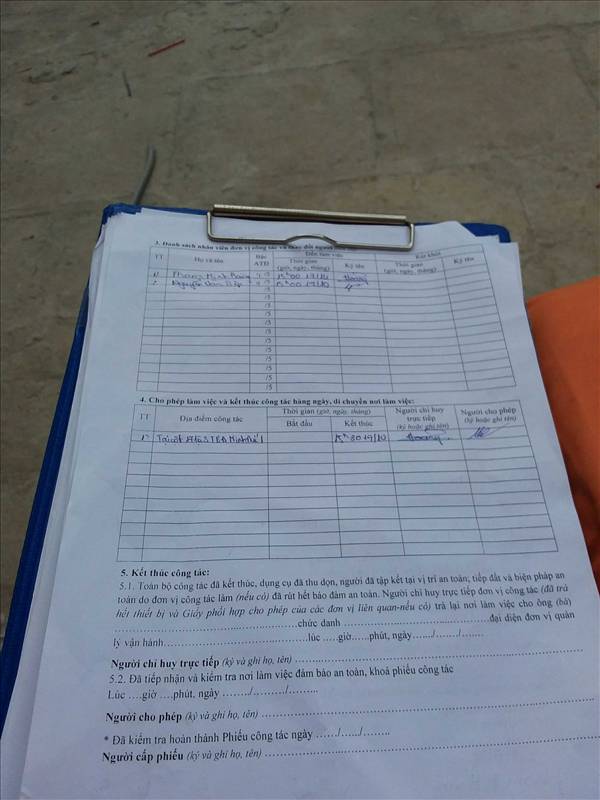 3. Danh sách nhân viên đơn vị công tác và thay đổi người
TT Họ và tên Bậc ATĐ Đến làm việc Rút khỏi
Thời gian (giờ, ngày, tháng) Ký tên Thời gian (giờ, ngày, tháng) Ký tên
Minh Hoàng /5 15h00 19/10 Hoàng
2 Nguyễn Văn /5 15h00 19/10
/5
/5
/5
/5
/5
/5
/5
/5
/5
/5
4. Cho phép làm việc và kết thúc công tác hàng ngày, di chuyển nơi làm việc:
TT Địa điểm công tác Thời gian (giờ, ngày, tháng) Người chỉ huy trực tiếp (ký hoặc ghi tên) Người cho phép (ký hoặc ghi tên)
Bắt đầu Kết thúc
1 Tại 30 19/10 Hoàng
5. Kết thúc công tác:
5.1. Toàn bộ công tác đã kết thúc, dụng cụ đã thu dọn, người đã tập kết tại vị trí an toàn; tiếp đất và biện pháp an
toàn do đơn vị công tác làm (nếu có) đã rút hết bảo đảm an toàn. Người chỉ huy trực tiếp đơn vị công tác (đã trả
hết thiết bị và Giấy phối hợp cho phép của các đơn vị liên quan-nếu có) trả lại nơi làm việc cho ông (bà)
……………………………chức danh ……………………………đại diện đơn vị quản
lý vận hành……………………………lúc ….giờ…..phút, ngày……/……/…….
Người chỉ huy trực tiếp (ký và ghi họ, tên) ……………………………
5.2. Đã tiếp nhận và kiểm tra nơi làm việc đảm bảo an toàn, khoá phiếu công tác
Lúc ….giờ ….phút, ngày ……../………../……..
Người cho phép (ký và ghi họ, tên) ……………………………
* Đã kiểm tra hoàn thành Phiếu công tác ngày ……/……/……..
Người cấp phiếu (ký và ghi họ, tên) ……………………………